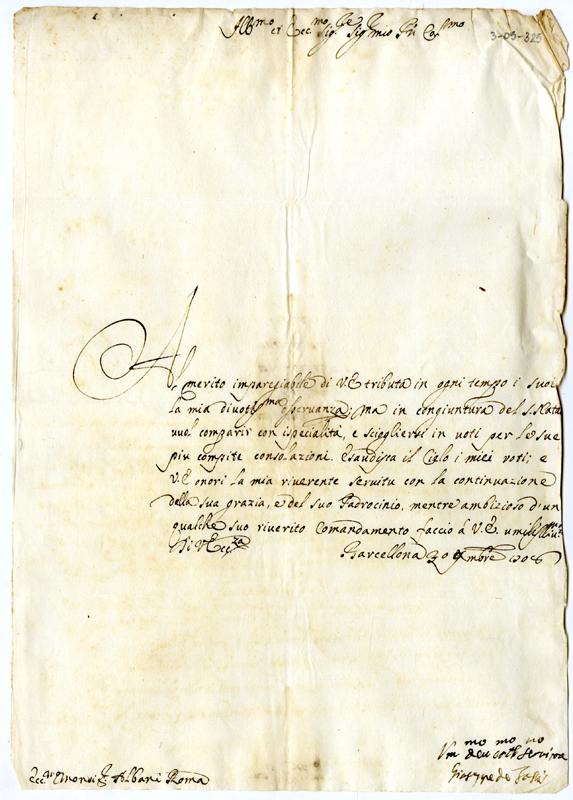 Ill^mo et Ecc^mo Sig^re Sig^r mio P̃ñ Col^mo
3-05-325
Al merito impareggiabile di V.E. tributa in ogni tempo i suoi
la mia divot^ma osservanza; Ma in congiuntura del S. Nata
vuol comparir con ispecialità, e sciogliersi in voti per le sue
piu compite consolazioni. Esaudisca il Cielo i miei voti; e
V.E. onori la mia riverente servitu con la continuazione
della sua grazia, e del suo Padrocinio, mentre ambizioso d'un
qualche suo riverito Comandamento faccio à V.E. umiliss^ma
Di V. Ecc^za
Barcellona 20 Xmbre
Um^mo dev^mo servitore
Giuseppe de
Ecc^mo Monsi^r Albani Roma